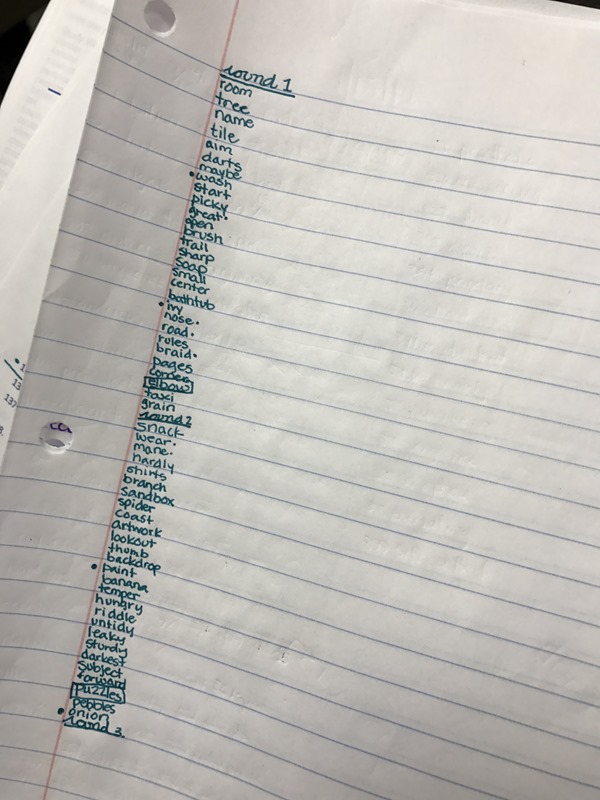 round 1
room
tree
name
tile
aim
darts
maybe
• wash
start
picky
great•
open
brush
trail
sharp
soap
small
center
bathtub
• ivy
nose•
road•
rules
braid•
pages
corner
elbow
taxi
grain
round 2
snack
wear•
mane•
hardly
shirts
branch
sandbox
spider
coast
artwork
lookout
thumb
backdrop
• paint
banana
temper
hungry
riddle
untidy
leaky
sturdy
darkest
subject
forward
puzzles
pebbles
• onion
round 3
137